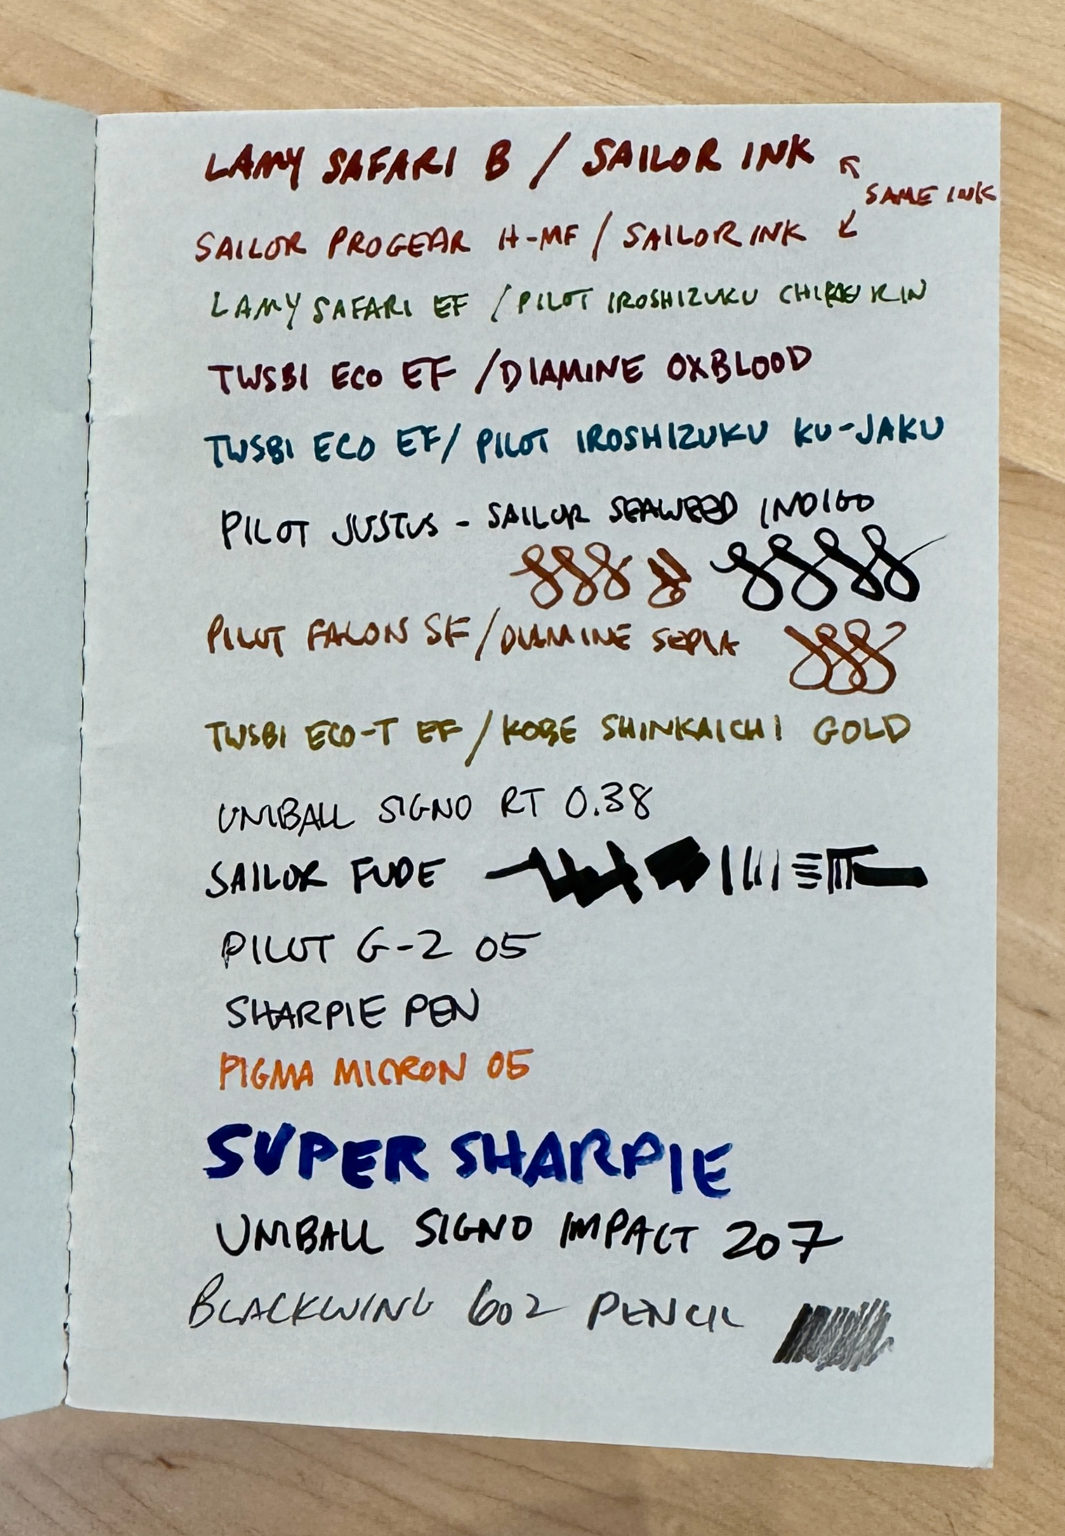 LAMY SAFARI B / SAILOR INK
SAME INK
SAILOR PROGEAR H-MF / SAILOR INK
LAMY SAFARI EF / PILOT IROSHIZUKU
TWSBI ECO EF / DIAMINE OXBLOOD
TWSBI ECO EF / PILOT IROSHIZUKU KU-JAKU
PILOT JUSTUS - SAILOR SEAWEED INDIGO
PILOT FALON SF / DIAMINE SEPIA
TWSBI ECO-T EF / KOBE SHINKAICHI GOLD
UNIBALL SIGNO RT 0.38
SAILOR FUDE
PILOT G-2 05
SHARPIE PEN
PIGMA MICRON 05
SUPER SHARPIE
UNIBALL SIGNO IMPACT 207
BLACKWING 602 PENCIL